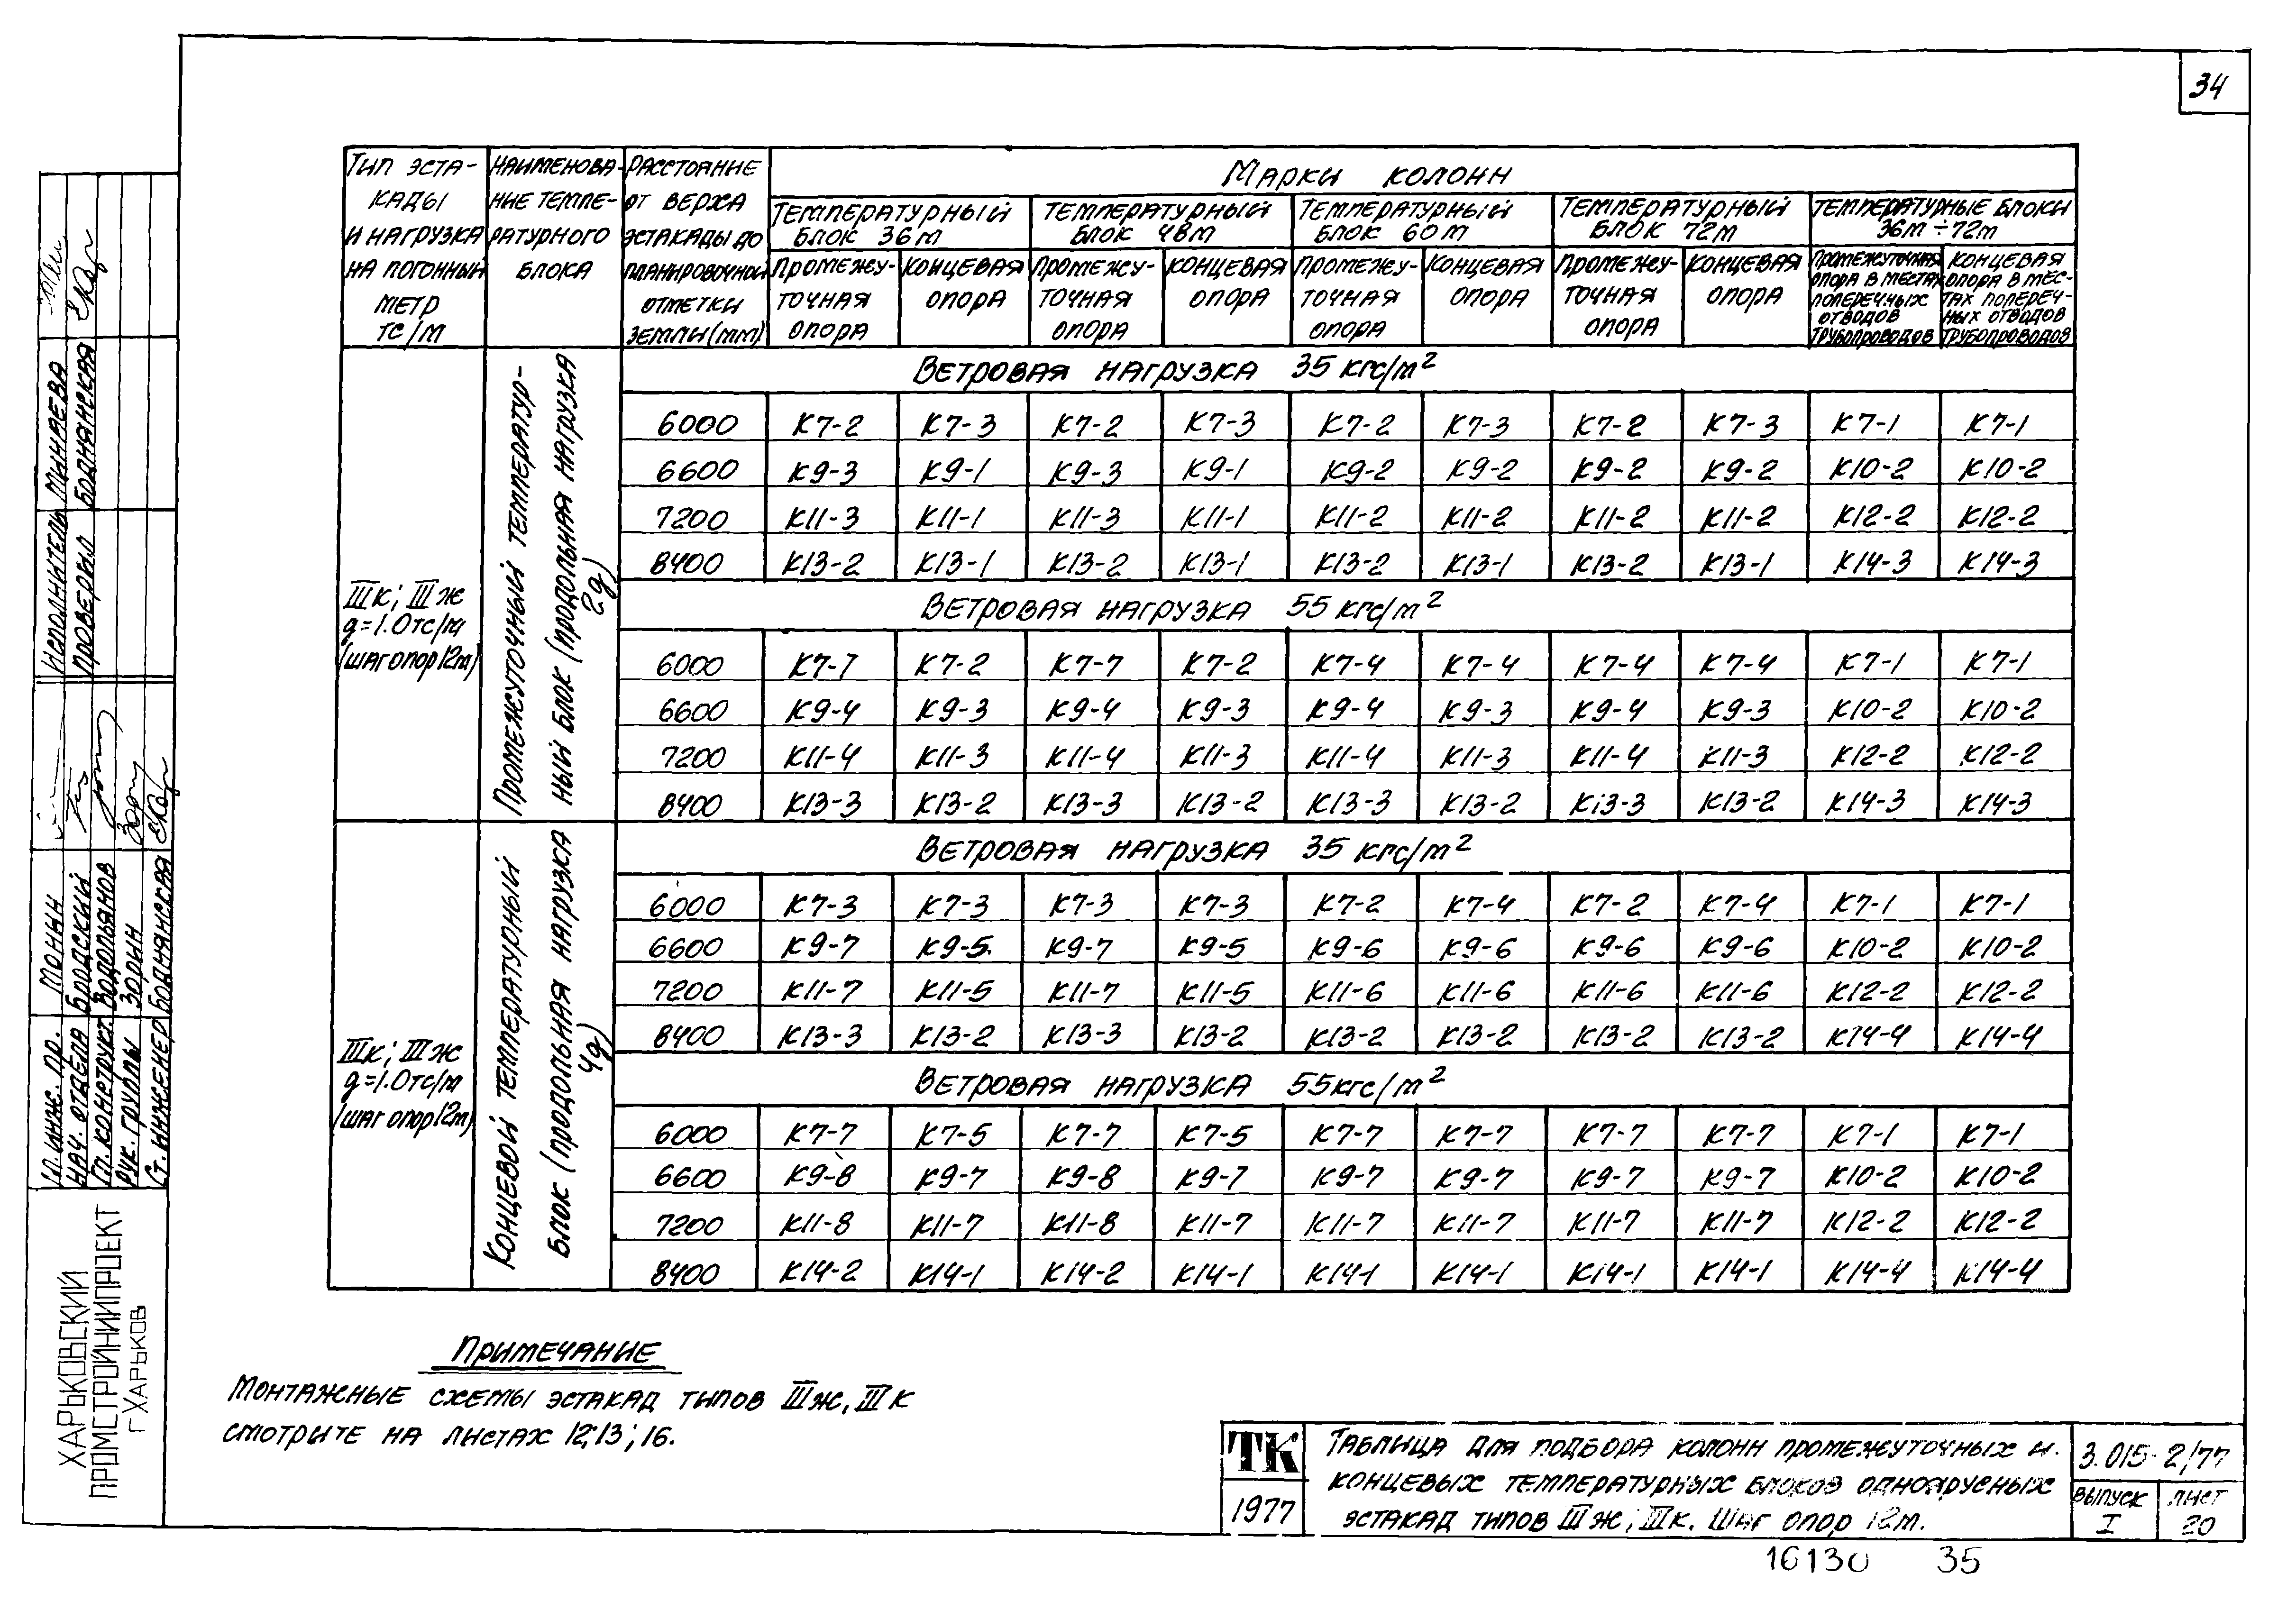 34
Тип эста-
кады
и нагрузка
на погонный
метр
тс/м
Наименова-
ние темпе-
ратурного
блока
Расстояние
от верха
эстакады до
планировочной
отметки
земли (мм)
Марки колонн
Температурный
блок 36м
Температурный
блок 48м
Температурный
блок 60м
Температурный
блок 72м
Температурные блоки
36м÷72м
Промежу-
точная
опора
Концевая
опора
Промежу-
точная
опора
Концевая
опора
Промежу-
точная
опора
Концевая
опора
Промежу-
точная
опора
Концевая
опора
Промежуточная
опора в местах
поперечных
отводов
трубопроводов
Концевая
опора в мес-
тах попереч-
ных отводов
трубопроводов
IIIк; IIIж
g=1.0тс/м
(шаг опор 12м)
Промежуточный температур-
ный блок (продольная нагрузка
2g)
Ветровая нагрузка 35 кгс/м²
6000 К7-2 К7-3 К7-2 К7-3 К7-2 К7-3 К7-2 К7-3 К7-1 К7-1
6600 К9-3 К9-1 К9-3 К9-1 К9-2 К9-2 К9-2 К9-2 К10-2 К10-2
7200 К11-3 К11-1 К11-3 К11-1 К11-2 К11-2 К11-2 К11-2 К12-2 К12-2
8400 К13-2 К13-1 К13-2 К13-1 К13-2 К13-1 К13-2 К13-1 К14-3 К14-3
Ветровая нагрузка 55 кгс/м²
6000 К7-7 К7-2 К7-7 К7-2 К7-4 К7-4 К7-4 К7-4 К7-1 К7-1
6600 К9-4 К9-3 К9-4 К9-3 К9-4 К9-3 К9-4 К9-3 К10-2 К10-2
7200 К11-4 К11-3 К11-4 К11-3 К11-4 К11-3 К11-4 К11-3 К12-2 К12-2
8400 К13-3 К13-2 К13-3 К13-2 К13-3 К13-2 К13-3 К13-2 К14-3 К14-3
IIIк; IIIж
g=1.0тс/м
(шаг опор 12м)
Концевой температурный
блок (продольная нагрузка
4g)
Ветровая нагрузка 35 кгс/м²
6000 К7-3 К7-3 К7-3 К7-3 К7-2 К7-4 К7-2 К7-4 К7-1 К7-1
6600 К9-7 К9-5 К9-7 К9-5 К9-6 К9-6 К9-6 К9-6 К10-2 К10-2
7200 К11-7 К11-5 К11-7 К11-5 К11-6 К11-6 К11-6 К11-6 К12-2 К12-2
8400 К13-3 К13-2 К13-3 К13-2 К13-2 К13-2 К13-2 К13-2 К14-4 К14-4
Ветровая нагрузка 55кгс/м²
6000 К7-7 К7-5 К7-7 К7-5 К7-7 К7-7 К7-7 К7-7 К7-1 К7-1
6600 К9-8 К9-7 К9-8 К9-7 К9-7 К9-7 К9-7 К9-7 К10-2 К10-2
7200 К11-8 К11-7 К11-8 К11-7 К11-7 К11-7 К11-7 К11-7 К12-2 К12-2
8400 К14-2 К14-1 К14-2 К14-1 К14-1 К14-1 К14-1 К14-1 К14-4 К14-4
Примечание
Монтажные схемы эстакад типов IIIж, IIIк
смотрите на листах 12;13;16.
ТК
1977
Таблица для подбора колонн промежуточных и
концевых температурных блоков одноярусных
эстакад типов IIIж, IIIк. Шаг опор 12м.
3.015-2/77
Выпуск
I
Лист
20
16130 35
Исполнитель Минаева
Проверил Боднянская
Гл. инж. пр. Монин
Нач. отдела Бродский
Гл. конструкт. Водольянов
Рук. группы Зорин
Ст. инженер Боднянская
Харьковский
Промстройниипроект
г Харьков